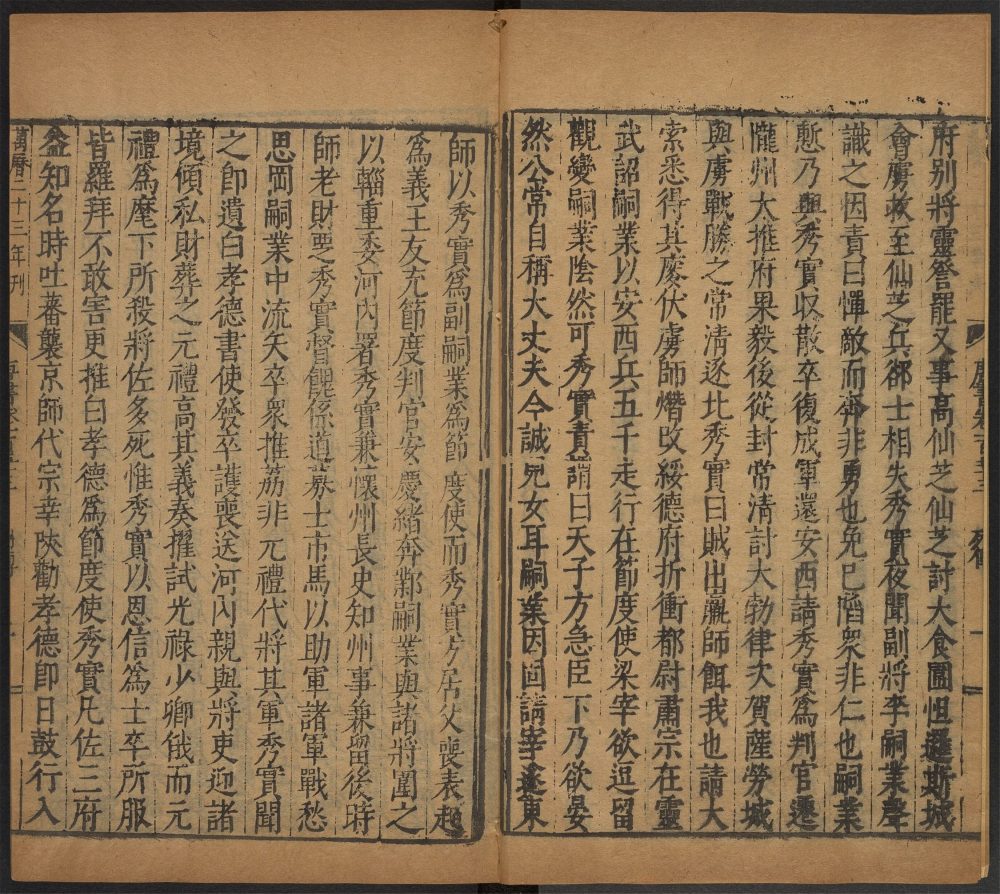 府別將靈詧罷又事高仙芝仙芝討大食圍怛邏斯城
會虜救至仙芝兵郤士相失秀實夜聞副將李嗣業聲
識之因責曰憚敵而奔非勇也免已陷衆非仁也嗣業
慙乃與秀實収散卒復成軍還安西請秀實爲判官遷
隴州大推府果毅後從封常清討大勃律次賀薩勞城
與虜戰勝之常清逐北秀實曰賊出羸師餌我也請大
索悉得其廋伏虜師熸攺綏德府折衝都尉肅宗在靈
武詔嗣業以安西兵五千走行在節度使梁宰欲逗留
觀變嗣業陰然可秀實責謂曰天子方急臣下乃欲晏
然公常自稱大丈夫今誠兒女耳嗣業因固請宰遂東
師以秀實爲副嗣業爲節度使而秀實方居父喪表起
爲義王友充節度判官安慶緒奔鄴嗣業與諸將圍之
以輜重委河內署秀實兼懷州長史知州事兼畱後時
師老財覂秀實督餽係道募士市馬以助軍諸軍戰愁
思岡嗣業中流矢卒衆推荔非元禮代將其軍秀實聞
之即遺白孝德書使發卒護喪送河內親與將吏迎諸
境傾私財葬之元禮高其義奏擢試光祿少卿俄而元
禮爲麾下所殺將佐多死惟秀實以恩信爲士卒所服
皆羅拜不敢害更推白孝德爲節度使秀實凡佐三府
益知名時吐蕃襲京師代宗幸陝勸孝德即日鼓行入
萬曆二十三年刊